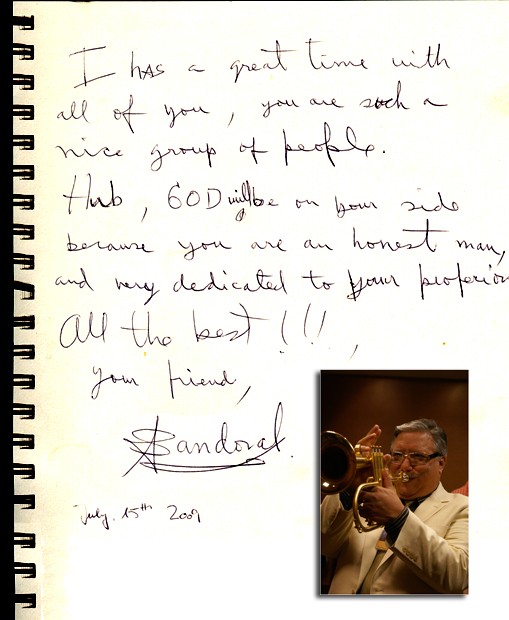 I has a great time with
all of you, you are such a
nice group of people.
Hub, GOD will be on your side
because you are an honest man,
and very dedicated to your profesion
All the best!!!,
your friend,
ASandoval.
July. 15th 2009